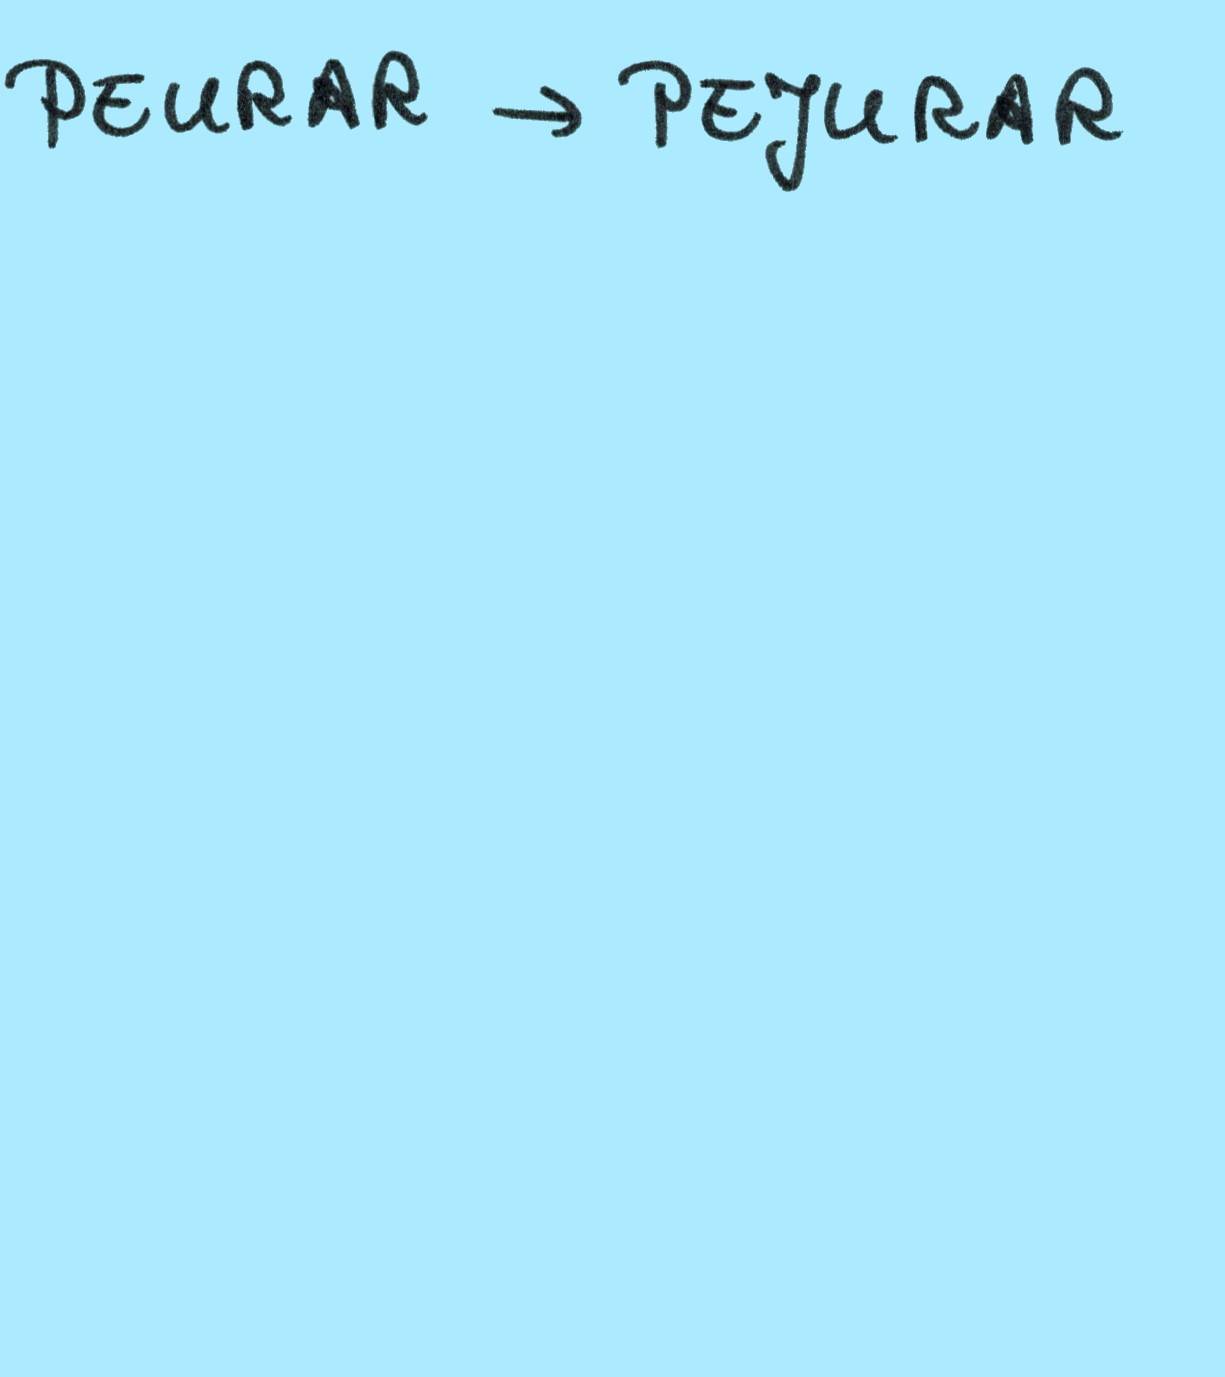 PEURAR → PEJURAR